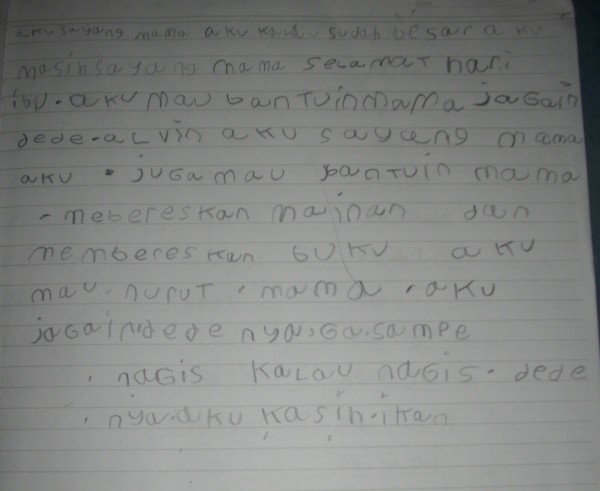 aku sayang mama aku kalau sudah besar aku
masih sayang mama selamat hari
ibu. aku mau bantuin mama jagain
dede-alvin aku sayang mama
aku . juga mau bantuin mama
- mebereskan mainan dan
membereskan buku aku
mau. nurut . mama . aku
jagain.dede nya.ga.sampe
. nagis kalau nagis. dede
. nya.aku kasih.ikan